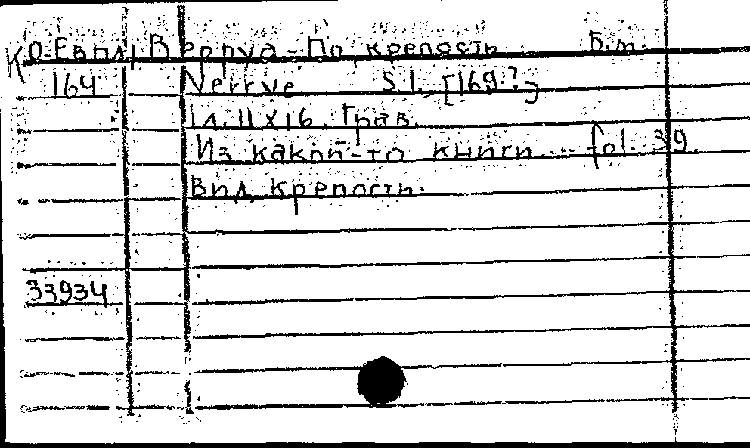 К О-Евпл, Веррua-По, крепость Б.м.
164 Verrue S.l. [169?]
1л. 11X16. Грав.
Из какой-то книги... fol. 39.
Вид крепости.
33934